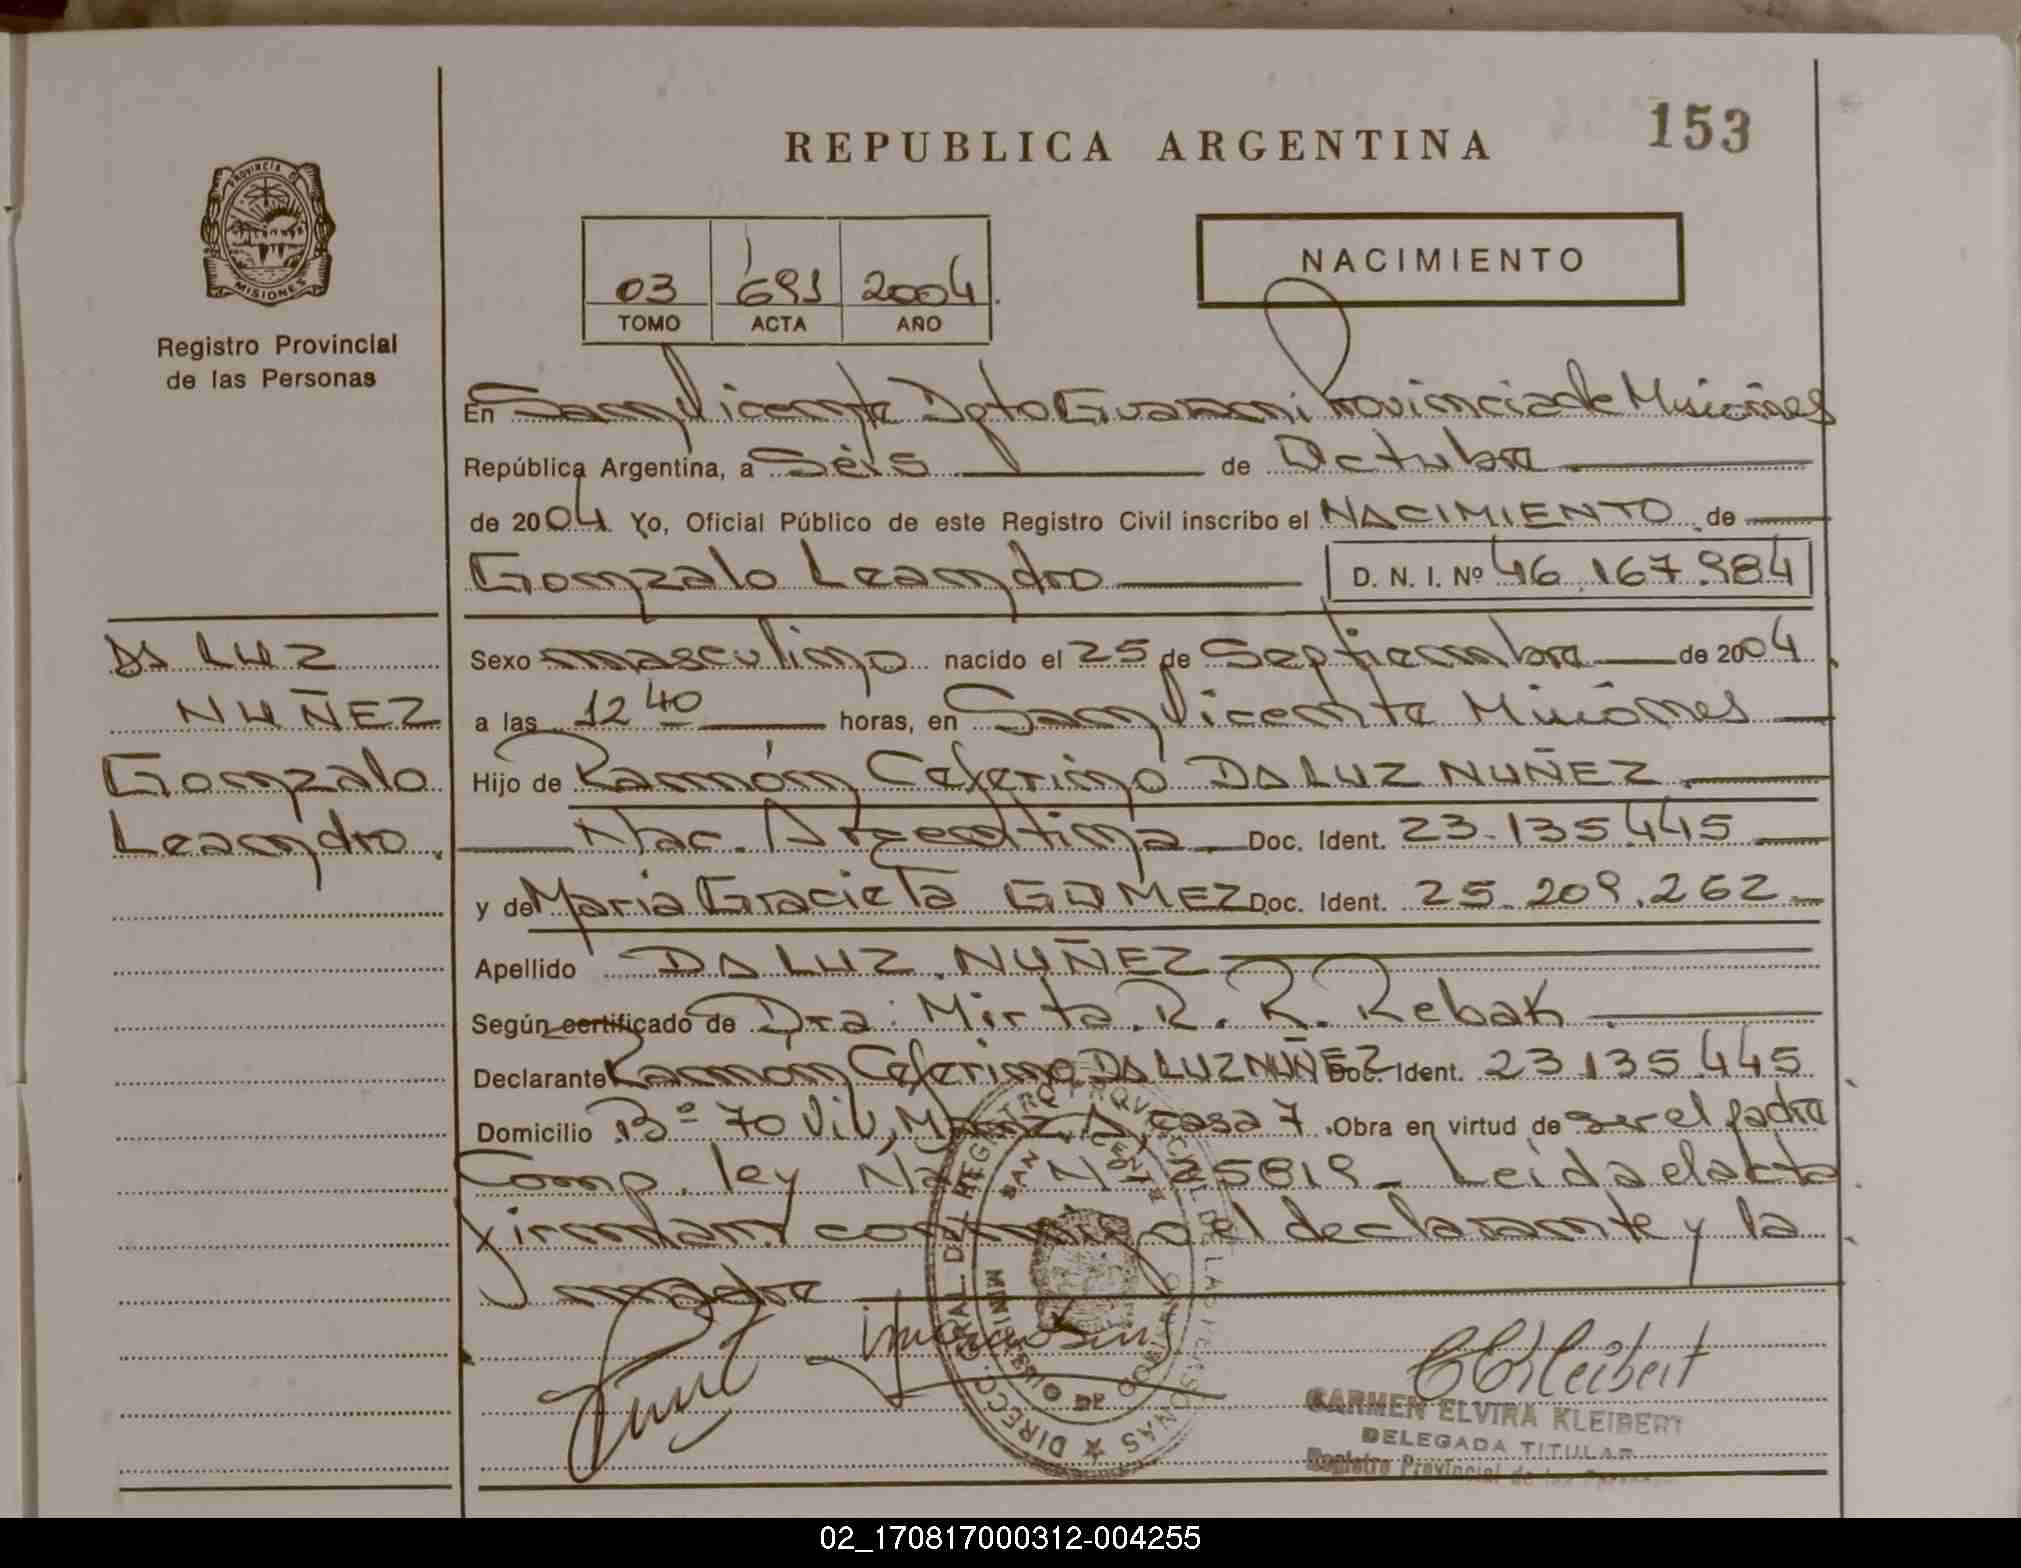 153
REPUBLICA ARGENTINA
PROVINCIA DE
MISIONES
Registro Provincial
de las Personas
NACIMIENTO
03 691 2004
TOMO ACTA AÑO
En San Vicente Dpto Guarani Provincia de Misiones
República Argentina, a Séis de Octubre
de 2004 Yo, Oficial Público de este Registro Civil inscribo el NACIMIENTO de
Gonzalo Leandro D. N. I. Nº 46.167.984
DA LUZ
NUÑEZ
Gonzalo
Leandro.
Sexo masculino nacido el 25 de Septiembre de 2004
a las 12 40 horas, en San Vicente Misiones
Hijo de Ramón Ceferino DA LUZ NUÑEZ.
Nac. Argentina Doc. Ident. 23.135.445
y de Maria Graciela GOMEZ Doc. Ident. 25.209.262
Apellido DA LUZ NUÑEZ
Según certificado de Dra: Mirta. R. R. Rebak.
Declarante Ramón Ceferino DA LUZ NUÑEZ Doc. Ident. 23.135.445
Domicilio Bº 70 Viv, A, casa 7. Obra en virtud de ser el padre
Comp. ley Nº 25819 - Leida el acta
firman conmigo el declarante y la
madre
CKleibert
CARMEN ELVIRA KLEIBERT
DELEGADA TITULAR
Registro Provincial de las
SAN VICENTE
02_170817000312-004255